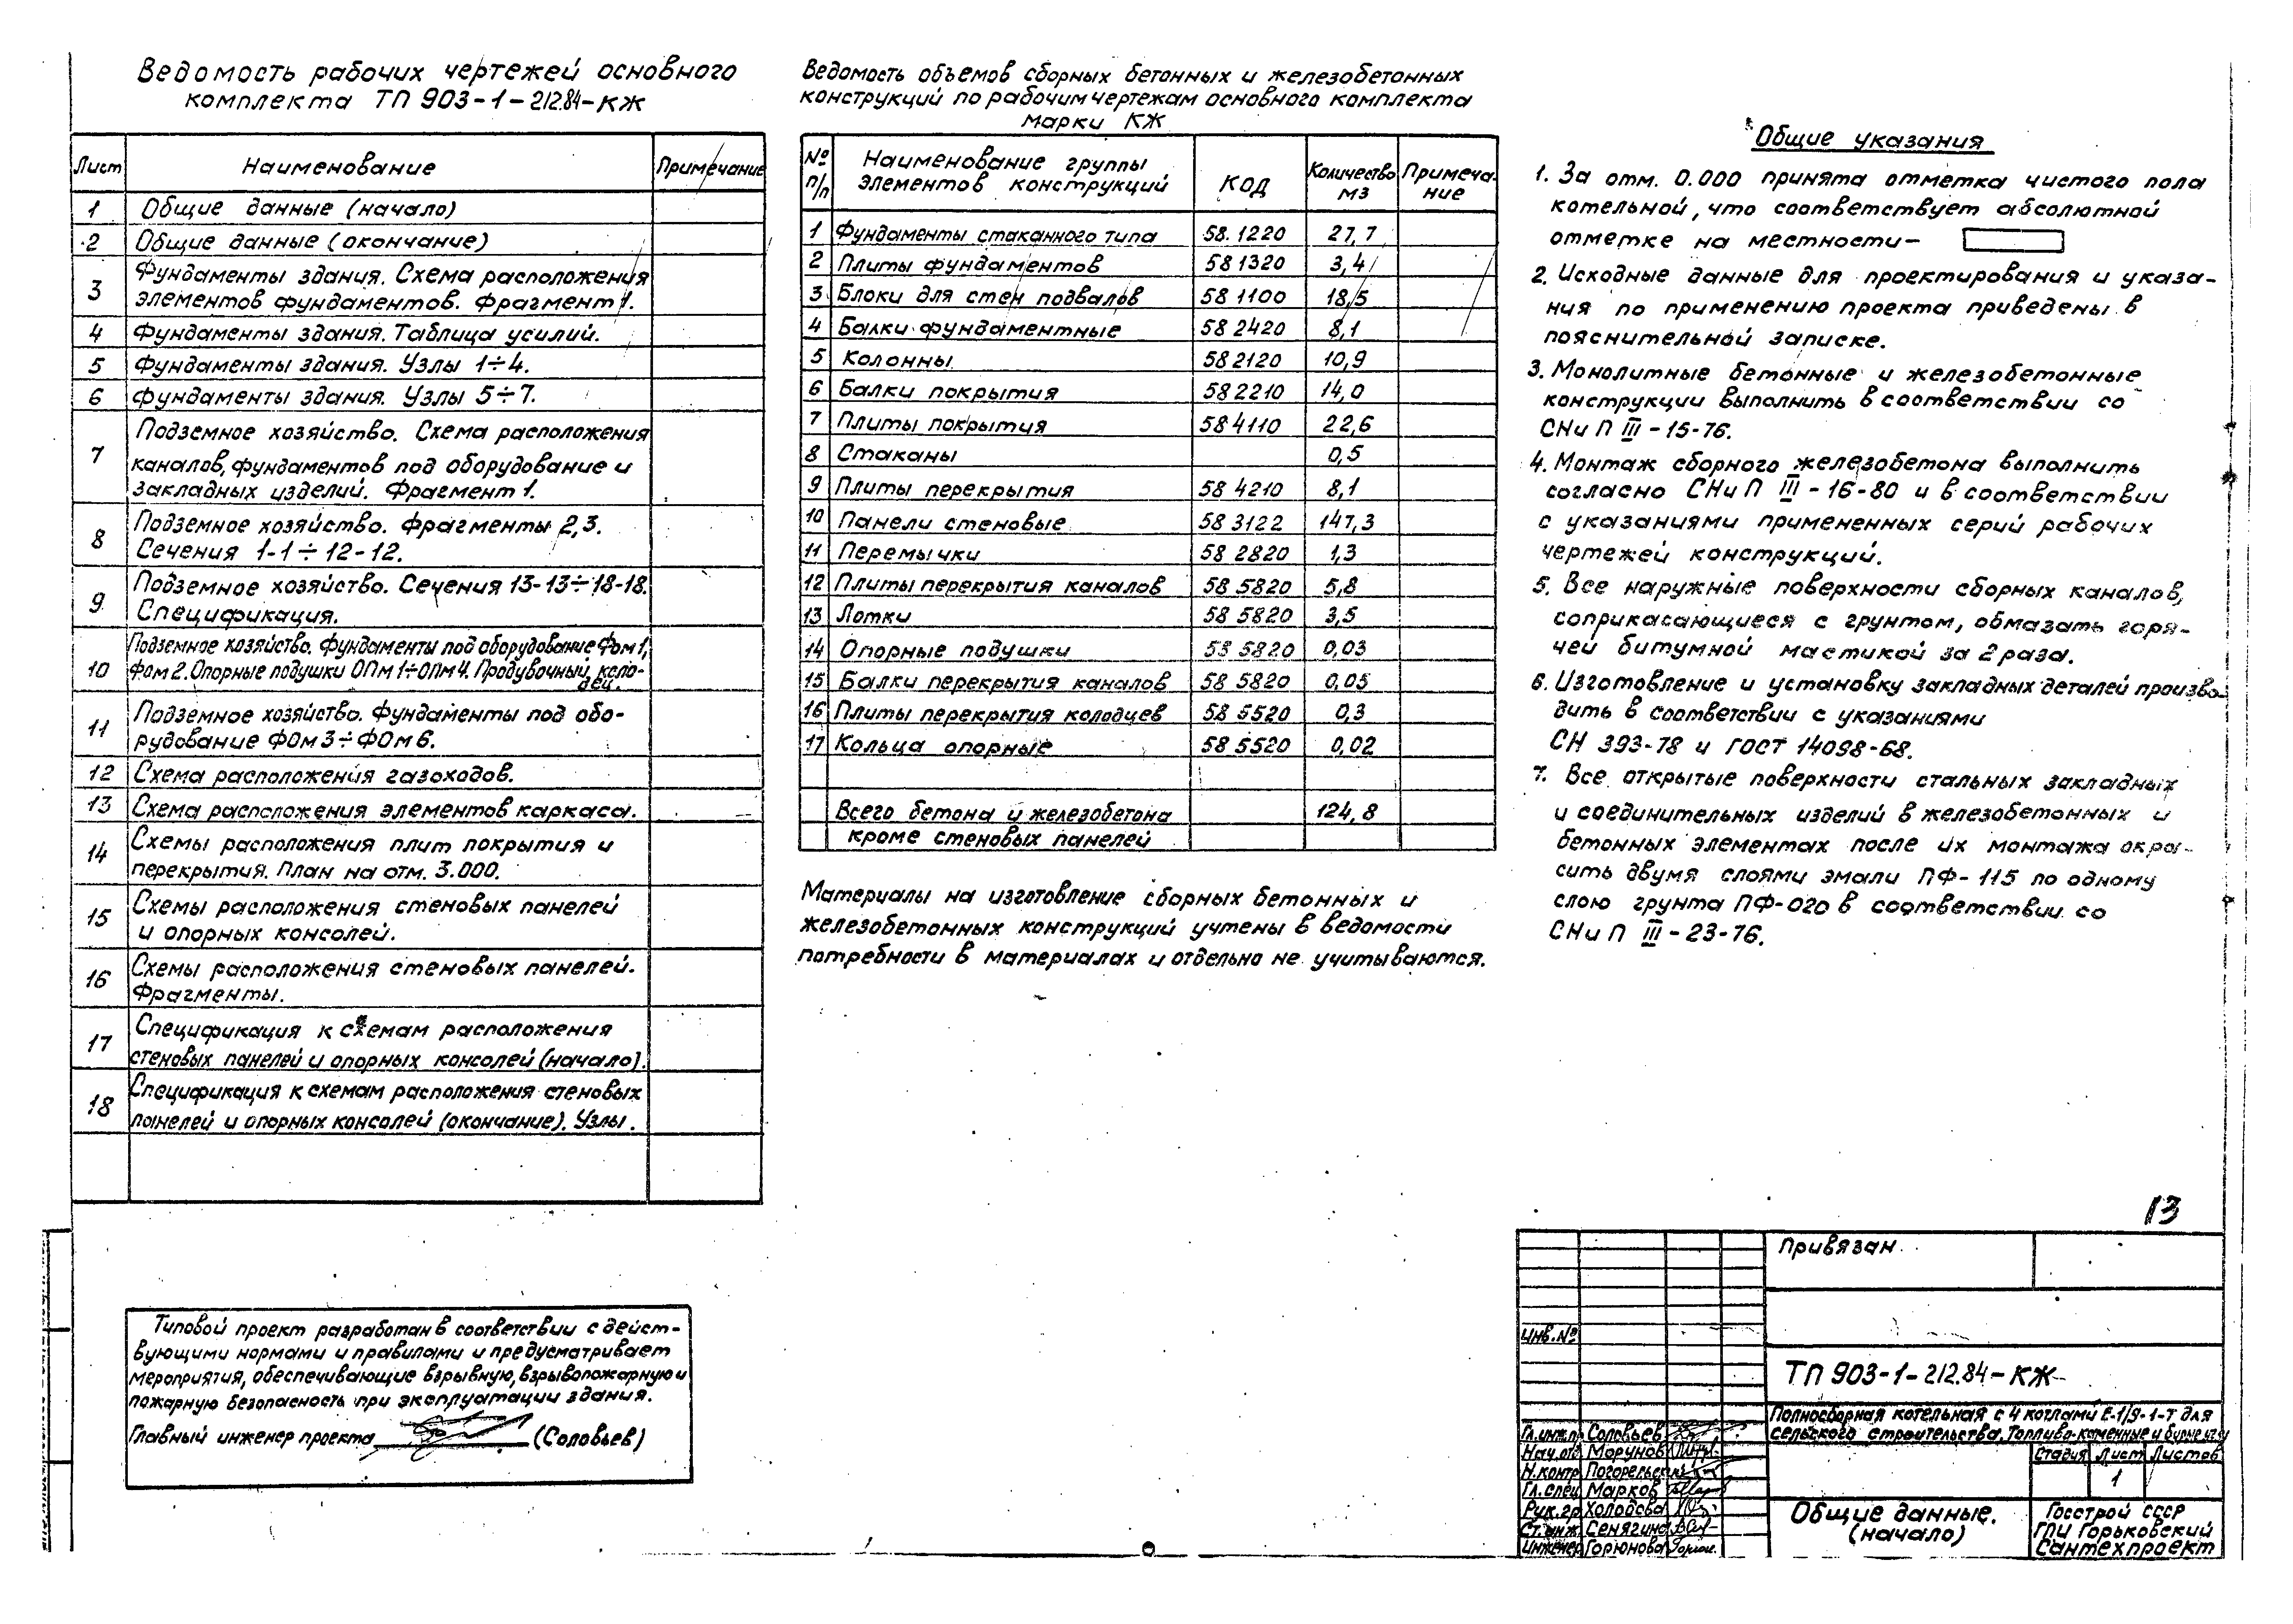 Ведомость рабочих чертежей основного
комплекта ТП 903-1-212.84-КЖ
Лист Наименование Примечание
1 Общие данные (начало)
2 Общие данные (окончание)
3 Фундаменты здания. Схема расположения
элементов фундаментов. Фрагмент 1.
4 Фундаменты здания. Таблица усилий.
5 Фундаменты здания. Узлы 1÷4.
6 Фундаменты здания. Узлы 5÷7.
7 Подземное хозяйство. Схема расположения
каналов, фундаментов под оборудование и
закладных изделий. Фрагмент 1.
8 Подземное хозяйство. Фрагменты 2,3.
Сечения 1-1÷12-12.
9 Подземное хозяйство. Сечения 13-13÷18-18.
Спецификация.
10 Подземное хозяйство. Фундаменты под оборудование Фом 1,
Фом 2. Опорные подушки ОПм 1÷ОПм 4. Продувочный коло-
дец.
11 Подземное хозяйство. Фундаменты под обо-
рудование ФОм 3÷ФОм 6.
12 Схема расположения газоходов.
13 Схема расположения элементов каркаса.
14 Схемы расположения плит покрытия и
перекрытия. План на отм. 3.000.
15 Схемы расположения стеновых панелей
и опорных консолей.
16 Схемы расположения стеновых панелей.
Фрагменты.
17 Спецификация к схемам расположения
стеновых панелей и опорных консолей (начало).
18 Спецификация к схемам расположения стеновых
панелей и опорных консолей (окончание). Узлы.
Типовой проект разработан в соответствии с дейст-
вующими нормами и правилами и предусматривает
мероприятия, обеспечивающие взрывную, взрывопожарную и
пожарную безопасность при эксплуатации здания.
Главный инженер проекта (Соловьев)
Ведомость объемов сборных бетонных и железобетонных
конструкций по рабочим чертежам основного комплекта
марки КЖ
№ п/п Наименование группы элементов конструкций Код Количество м3 Примеча-ние
1 Фундаменты стаканного типа 58.1220 27,7
2 Плиты фундаментов 58 1320 3,4
3 Блоки для стен подвалов 58 1100 18,5
4 Балки фундаментные 58 2420 8,1
5 Колонны 58 2120 10,9
6 Балки покрытия 58 2210 14,0
7 Плиты покрытия 58 4110 22,6
8 Стаканы 0,5
9 Плиты перекрытия 58 4210 8,1
10 Панели стеновые 58 3122 147,3
11 Перемычки 58 2820 1,3
12 Плиты перекрытия каналов 58 5820 5,8
13 Лотки 58 5820 3,5
14 Опорные подушки 58 5820 0,03
15 Балки перекрытия каналов 58 5820 0,05
16 Плиты перекрытия колодцев 58 5520 0,3
17 Кольца опорные 58 5520 0,02
Всего бетона и железобетона 124,8
кроме стеновых панелей
Материалы на изготовление сборных бетонных и
железобетонных конструкций учтены в ведомости
потребности в материалах и отдельно не учитываются.
Общие указания
1. За отм. 0.000 принята отметка чистого пола
котельной, что соответствует абсолютной
отметке на местности-
2. Исходные данные для проектирования и указа-
ния по применению проекта приведены в
пояснительной записке.
3. Монолитные бетонные и железобетонные
конструкции выполнить в соответствии со
СНиП III-15-76.
4. Монтаж сборного железобетона выполнить
согласно СНиП III-16-80 и в соответствии
с указаниями примененных серий рабочих
чертежей конструкций.
5. Все наружные поверхности сборных каналов,
соприкасающиеся с грунтом, обмазать горя-
чей битумной мастикой за 2 раза.
6. Изготовление и установку закладных деталей произво-
дить в соответствии с указаниями
СН 393-78 и ГОСТ 14098-68.
7. Все открытые поверхности стальных закладных
и соединительных изделий в железобетонных и
бетонных элементах после их монтажа окра-
сить двумя слоями эмали ПФ-115 по одному
слою грунта ПФ-020 в соответствии со
СНиП III-23-76.
13
Привязан
Инв.№
ТП 903-1-212.84-КЖ
Полносборная котельная с 4 котлами Е-1/9-1-Т для
сельского строительства. Топливо-каменные и бурые угли
Гл.инж.п Соловьев
Нач.отд Морунов
Н.контр Погорельский
Гл.спец Марков
Рук.гр Холодова
Ст.инж Сенягина
Инженер Горюнова
Стадия Лист Листов
1
Общие данные.
(начало)
Госстрой СССР
ГПИ Горьковский
Сантехпроект